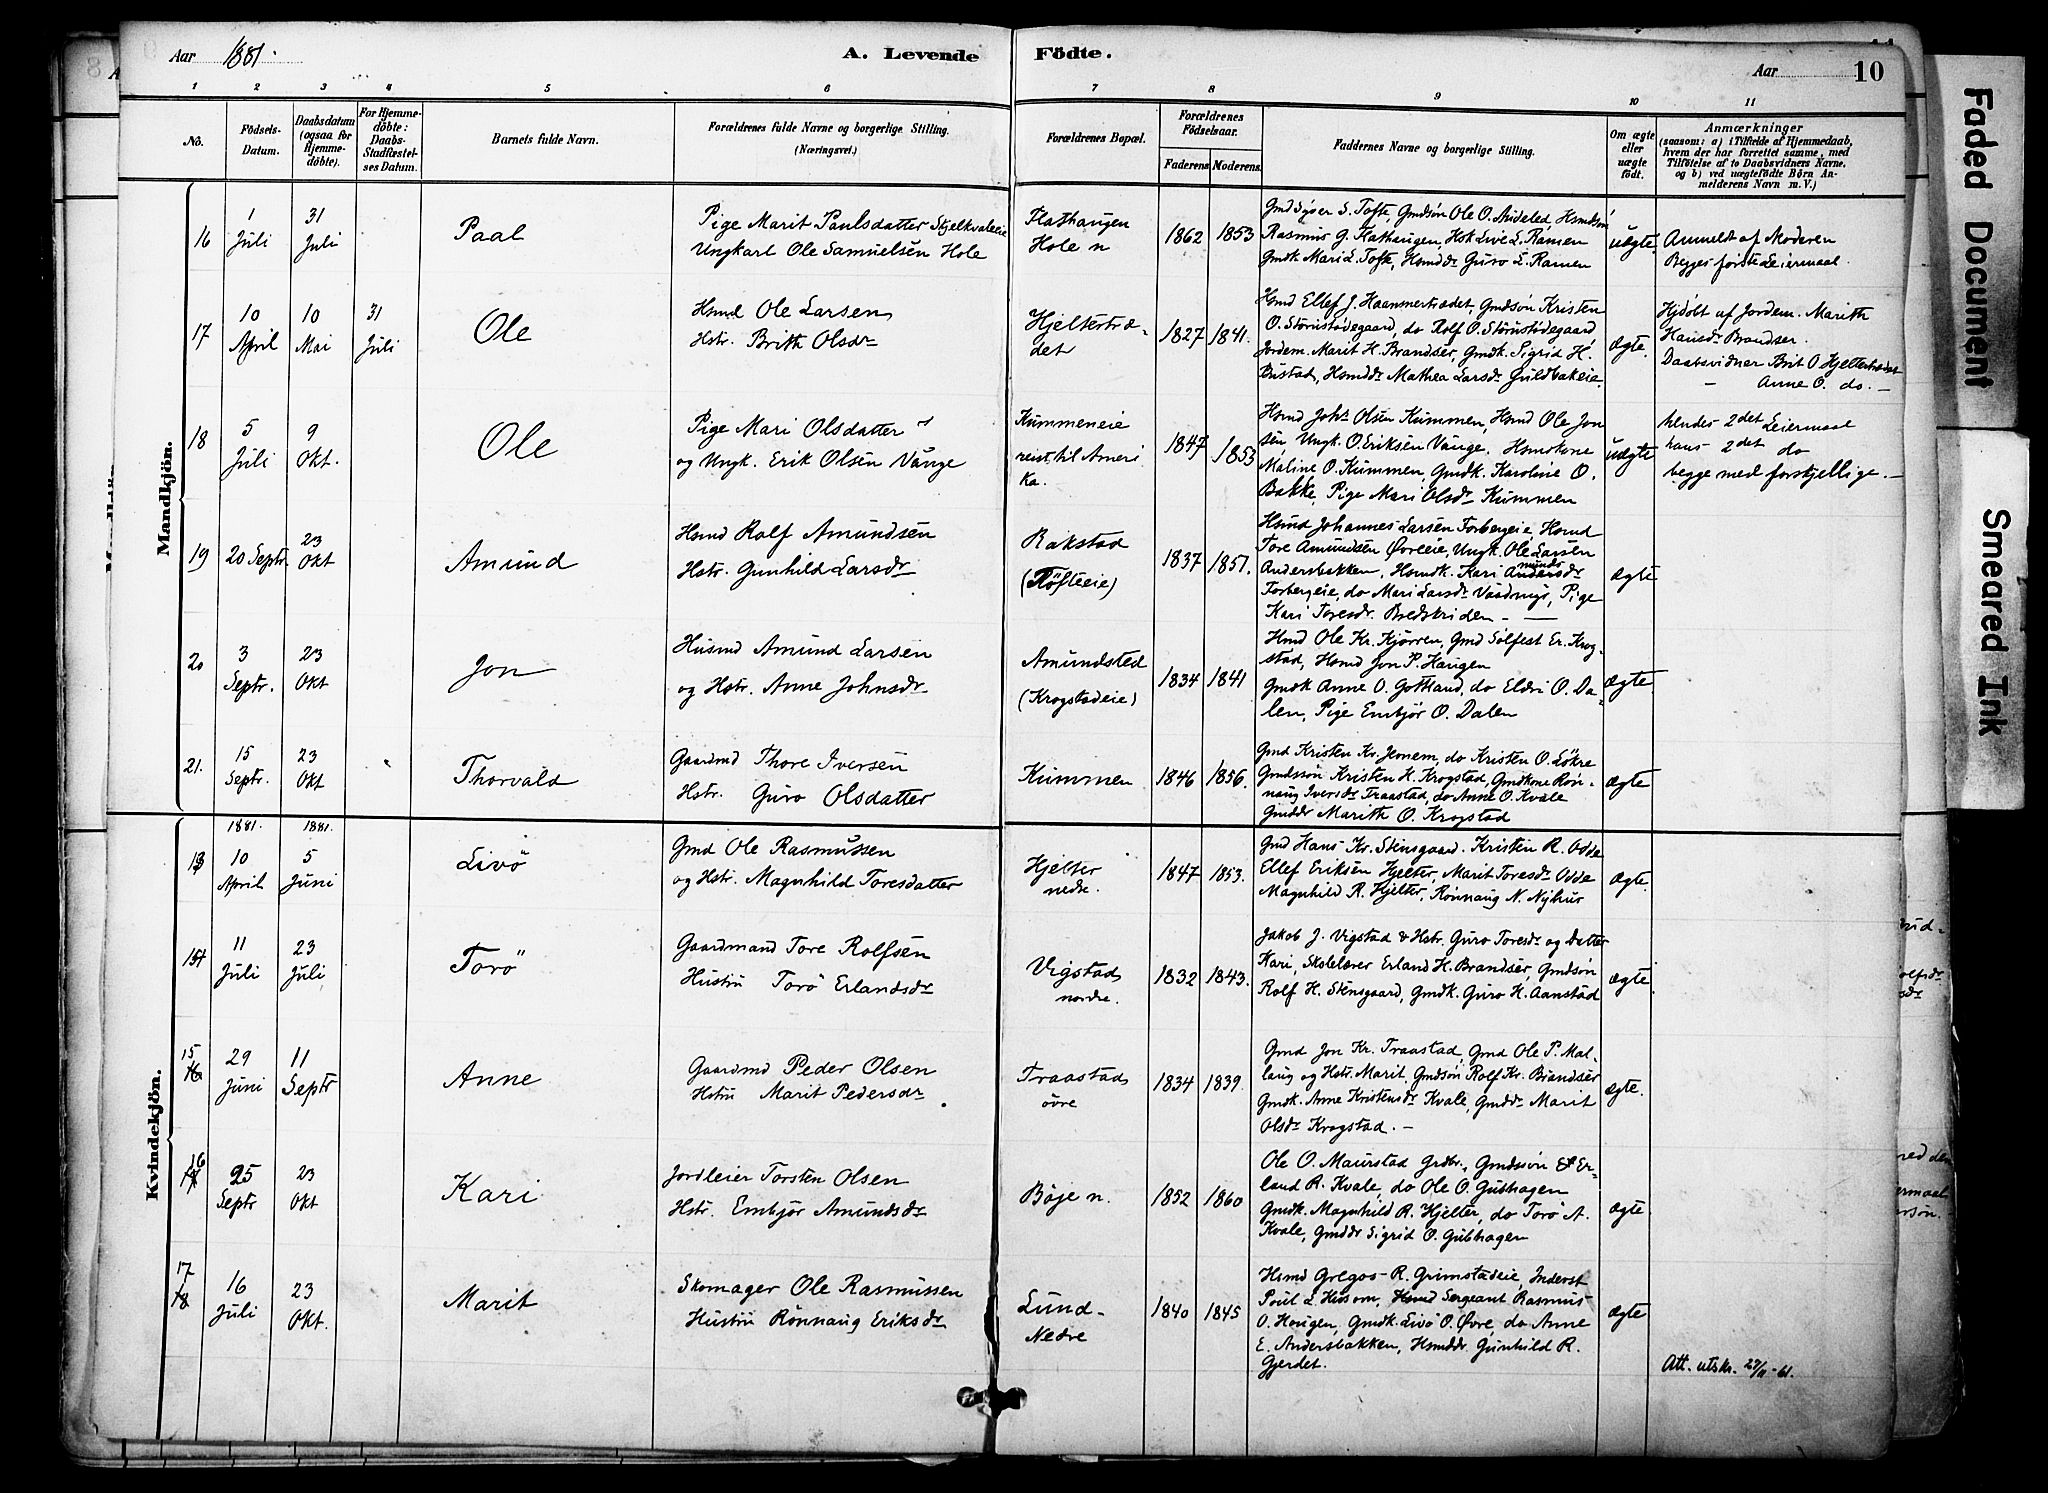 Aar 1881.
A. Levende Födte.
Aar 10
1 2 3 4 5 6 7 8 9 10 11
No.
Födsels-
Datum.
Daabsdatum
(ogsaa for
Hjemme-
döbte).
For Hjemme-
döbte:
Daabs-
Stadfæstel-
ses Datum.
Barnets fulde Navn.
Forældrenes fulde Navne og borgerlige Stilling.
(Næringsvei.)
Forældrenes Bopæl.
Forældrenes
Födselsaar.
Faderens Moderens
Faddernes Navne og borgerlige Stilling.
Om ægte
eller
uægte
födt.
Anmærkninger
(saasom: a) i Tilfælde af Hjemmedaab,
hvem der har forrettet samme, med
Tilföielse af to Daabsvidners Navne,
og b) ved uægtefödte Börn An-
melderens Navn m. V.)
Mandkjön.
16
1
Juli
31
Juli
Paal
Pige Marit Paulsdatter Skjelkvaleeie
Ungkarl Ole Samuelsen Hole
Flathaugen
Hole n
1862 1853
Gmd Syver S. Tofte, Gmdsøn Ole O. Andeled, Hsmdsøn
Rasmus G. Flathaugen, Hsk Live L. Ramen
Gmdk Mari L. Tofte, Hsmddr Guro L. Ramen
uægte
Anmeldt af Moderen
Begges første Leiermaal
17
10
April
10
Mai
31
Juli
Ole
Hsmd Ole Larsen
Hstr. Brith Olsdr
Hjeltestræ-
det
1827 1841.
Hsmd Ellef J. Haammerstrædet, Gmdsøn Kristen
O. Storustødegaard, do Rolf O. Storustødegaard
Jordem. Marit H. Brandser, Gmdk. Sigrid H.
Bustad, Hsmddr Mathea Larsdr Guldbakeie
ægte.
Hjdöbt af Jordem. Marith
Hansdr Brandser.
Daabsvidner Brit O Hjeltestrædet
— Anne O. do. —
18
5
Juli
9
Okt.
Ole
Pige Mari Olsdatter
og Ungk. Erik Olsen Vange
Kummeneie
reist til Ameri
ka.
1847 1853
Hsmd Johs Olsen Kummen, Hsmd Ole Jon
sen Ungk. O Eriksen Vange. Hsmdkone
Maline O. Kummen, Gmdk. Karoline O.
Bakke, Pige Mari Olsdr Kummen
uægte
hendes 2det Leiermaal
hans 2det do
begge med forskjellige. —
19
20 Septr.
23
Okt
Amund
Hsmd Rolf Amundsen
Hstr. Gunhild Larsdr
Bakstad
(Tøfteeie)
1837 1851.
Hsmd Johannes Larsen Forbergeie, Hsmd
Tore Amundsen Øvreeie, Ungk. Ole Larsen
Andersbakken, Hsmdk. Kari Andersdr
munds
Forbergeie, do Mari Larsdr, Pige
Kari Toresdr. Bredskriden — —
ægte
20
3
Septr.
23
Okt
Jon
Husmd Amund Larsen
og Hstr. Anne Johnsdr
Amundsted
(Krogstadeie)
1834 1841
Hsmd Ole Kr. Kjørren, Gmd Solfest Er. Krog-
stad, Hsmd Jon P. Haugen
Gmdk Anne O. Gottland, do Eldri O. Da-
len, Pige Embjør O. Dalen
ægte.
21.
15
Septr.
23
Okt
Thorvald
Gaardmd Thore Iversen
Hstr. Guro Olsdatter
Kummen
1846 1856.
Gmd Kristen Kr. Jonem, do Kristen O. Løkre
Gmdssøn Kristen K. Krogstad, Gmdkone Røn-
naug Iversdr Traastad, do Anne O. Kvale
Gmddr Marith O. Krogstad
ægte
Kvindekjön.
1881. 1881.
13
10
April
5
Juni
Livö
Gmd Ole Rasmussen
og Hstr. Magnhild Toresdatter
Hjelter
nedre.
1847 1853.
Gmd Hans Kr. Stensgaard. Kristen R. Odde
Ellef Eriksen Hjelter, Marit Toresdr Odde
Magnhild R. Hjelter, Rønnaug N. Nyhus
ægte.
14
11
Juli
23
Juli
Torö
Gaardmand Tore Rolfsen
Hustru Torö Erlandsdr
Vigstad
nordre.
1832 1843.
Jakob J. Vigstad & Hstr. Guro Toresdr og Datter
Kari, Skolelærer Erland H. Brandser, Gmdsøn
Rolf H. Stensgaard, Gmdk. Guro H. Aanstad
ægte.
15
16
29
Juni
11
Septr
Anne
Gaardmd Peder Olsen
Hstru Marit Pedersdr
Traastad
övre
1834 1839.
Gmd Jon Kr. Traastad, Gmd Ole P. Mal-
laug og Hstr. Marit, Gmdsøn Rolf Kr. Brandser
Gmdk. Anne Kristensdr Kvale, Gmddr Marit
Olsdr Krogstad. —
ægte.
16
17
25
Septr
23
Okt
Kari
Jordleier Torsten Olsen
Hstr. Embjør Amundsdr
Böje n.
1852 1860
Ole O. Maurstad Grdbr., Gmdssøn Er-
land R. Kvale, do Ole O. Gubhagen
Gmdk. Magnhild R. Hjelter, do Torö A.
Kvale, Gmddr Sigrid O. Gubhagen
ægte.
17
18
16
Juli
23
Okt.
Marit
Skomager Ole Rasmussen
Hustru Rønnaug Eriksdr
Lund
Nedre
1840 1845
Hsmd Gregos R. Grimstadeie, Inderst
Poul L Husom, Hsmd Sergeant Rasmus
O. Haugen, Gmdk. Livö O. Øvre, do Anne
E. Andersbakken, Hsmddr. Gunhild R.
Gjerdet.
ægte
Att. utskr. 27/11-61.
Faded Document
Smeared Ink